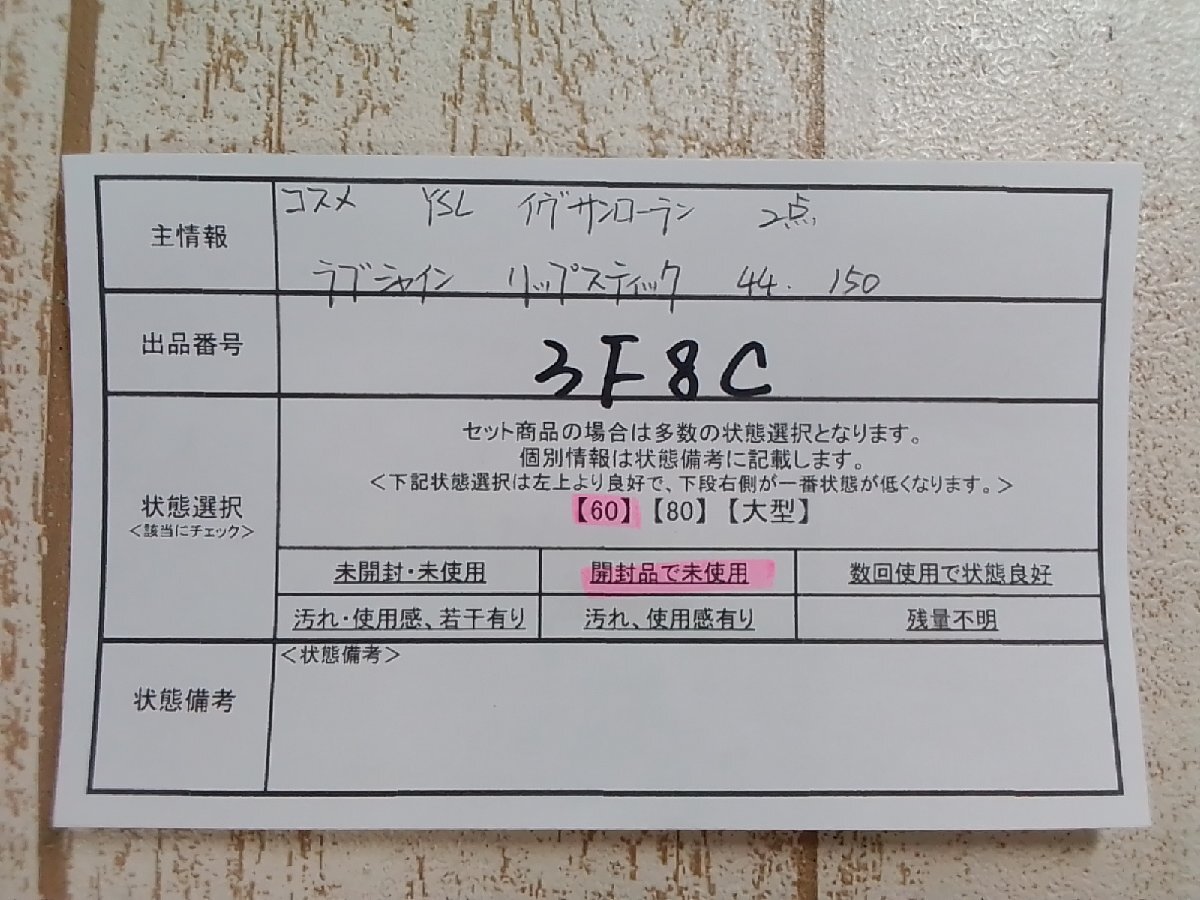 主情報
コスメ YSL イヴサンローラン 2点
ラブシャイン リップスティック 44. 150
出品番号
3F8C
状態選択
<該当にチェック>
セット商品の場合は多数の状態選択となります。
個別情報は状態備考に記載します。
<下記状態選択は左上より良好で、下段右側が一番状態が低くなります。>
【60】【80】【大型】
未開封・未使用 開封品で未使用 数回使用で状態良好
汚れ・使用感、若干有り 汚れ、使用感有り 残量不明
状態備考
<状態備考>